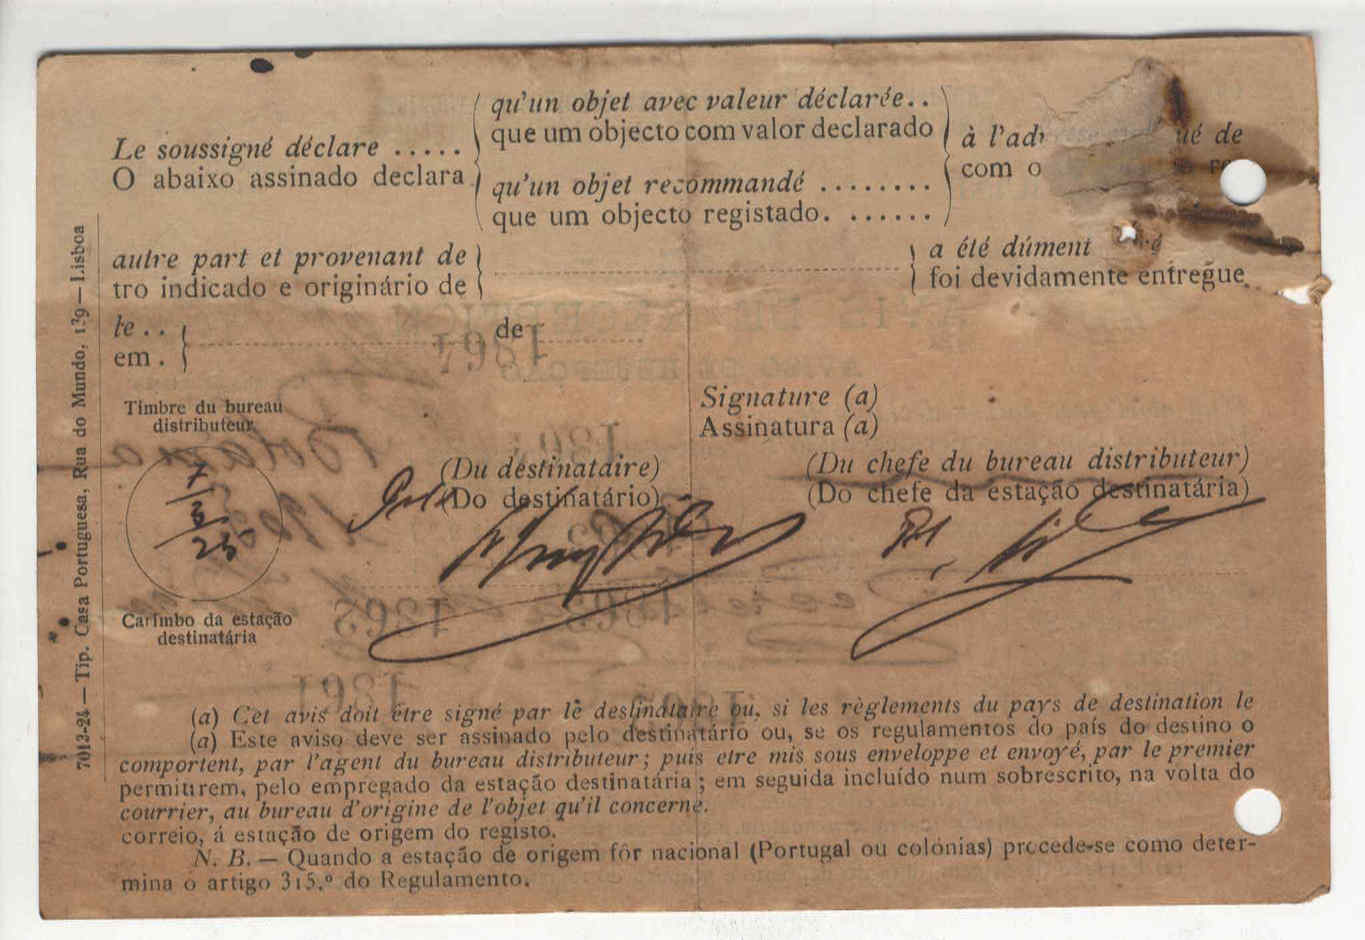 Le soussigné déclare .....
O abaixo assinado declara.
qu'un objet avec valeur déclarée..
que um objecto com valor declarado
qu'un objet recommandé ........
que um objecto registado. ......
à l'ad ué de
com o
autre part et provenant de
tro indicado e originário de
a été dûment
foi devidamente entregue.
le ..
em .
de
Timbre du bureau
distributeur
Signature (a)
Assinatura (a)
(Du destinataire)
(Do destinatário)
(Du chefe du bureau distributeur)
(Do chefe da estação destinatária)
7
25
Carimbo da estação
destinatária
(a) Cet avis doit être signé par le destinataire ou, si les règlements du pays de destination le
(a) Este aviso deve ser assinado pelo destinatário ou, se os regulamentos do país do destino o
comportent, par l'agent du bureau distributeur; puis etre mis sous enveloppe et envoyé, par le premier
permitirem, pelo empregado da estação destinatária; em seguida incluído num sobrescrito, na volta do
courrier, au bureau d'origine de l'objet qu'il concerne.
correio, á estação de origem do registo.
N. B. — Quando a estação de origem fôr nacional (Portugal ou colónias) procede-se como deter-
mina o artigo 315.º do Regulamento.
7013-24 — Tip. Casa Portuguesa, Rua do Mundo, 139 — Lisboa